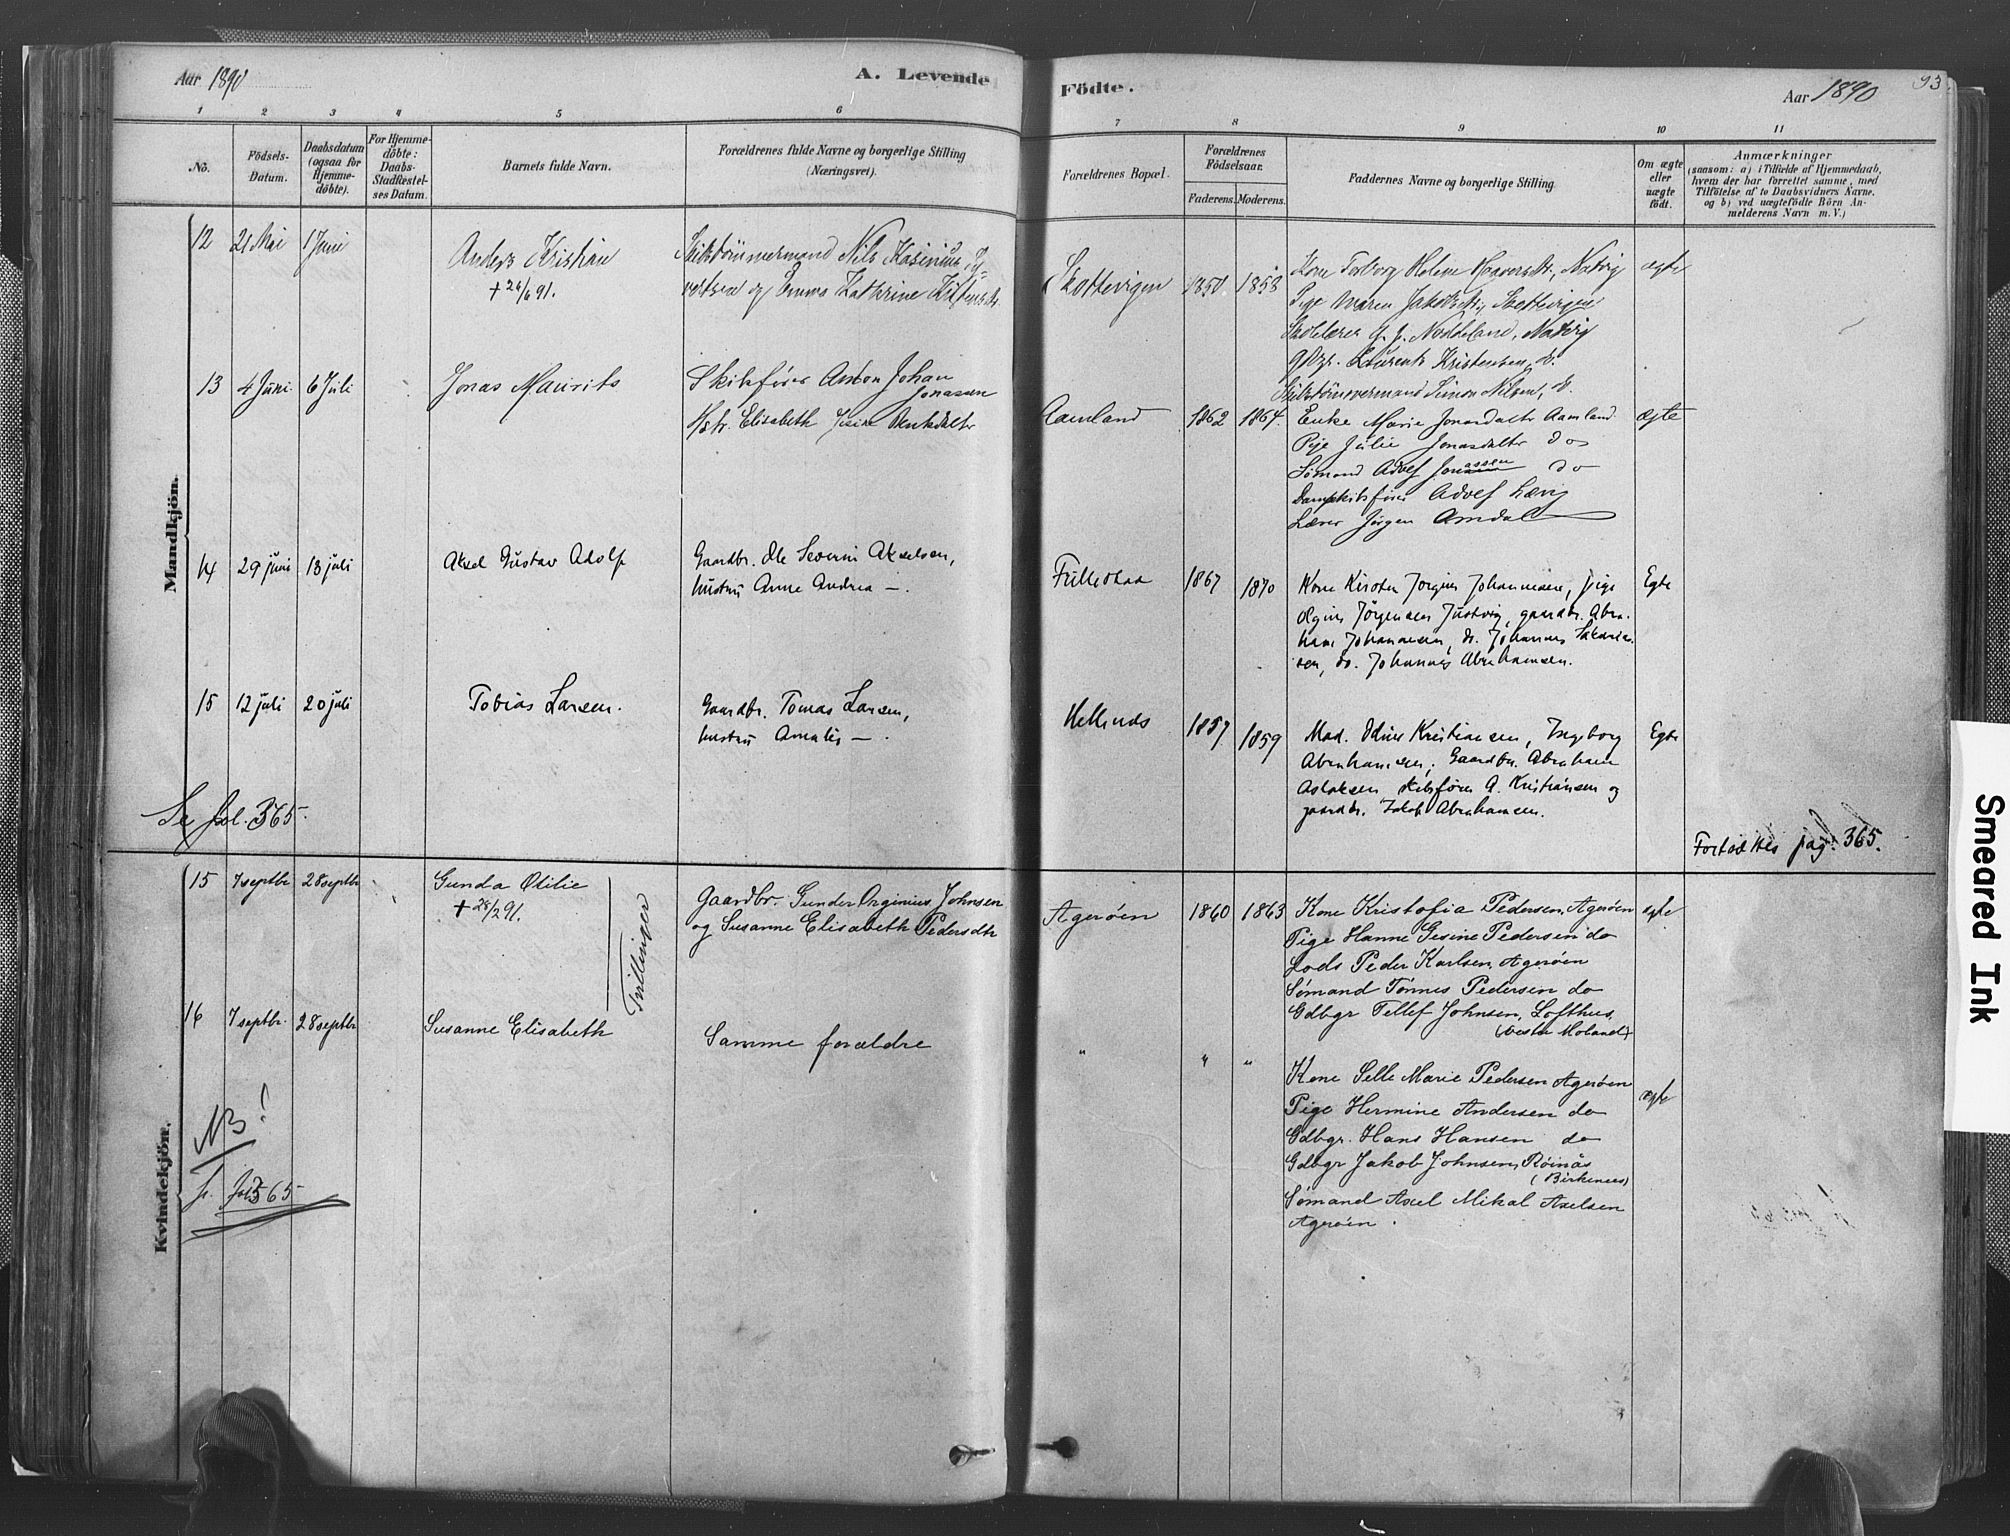 Aar 1890
A. Levende Födte.
Aar 1890
93.
1 2 3 4 5 6 7 8 9 10 11
No.
Födsels-
Datum.
Daabsdatum
(ogsaa for
Hjemme-
döbte).
For Hjemme-
döbte:
Daabs-
Stadfæstel-
ses Datum.
Barnets fulde Navn.
Forældrenes fulde Navne og borgerlige Stilling
(Næringsvei).
Forældrenes Bopæl.
Forældrenes
Födselsaar.
Faderens. Moderens.
Faddernes Navne og borgerlige Stilling
Om ægte
eller
uægte
født.
Anmærkninger
(saasom: a) i Tilfælde af Hjemmedaab,
hvem der har forrettet samme, med
Tilföielse af to Daabsvidners Navne,
og b) ved uægtefödte Börn An-
melderens Navn m. V.)
Mandkjön.
12 21 Mai 1 Juni
Anders Kristian
+ 24/6 91.
Skibstømmermand Nils Kasinius
og Emma Kathrine
Skottevigen 1850 1858
Kone Torborg Helene Natvig
Pige Maren Skottevigen
Skolelærer Noddeland, Natvig
Laurents Kristensen, do.
Skibstømmermand Simon Nilsen, do.
ægte
13 4 Juni 6 Juli
Jonas Maurits
Skibsfører Anton Johan
Jonassen
Hstr. Elisabeth
Aamland 1862 1864.
Enke Marie Jonasdatr Aamland
Pige Julie Jonasdatr do
Sømand Adolf Jonassen do
Dampskibsfører Adolf
Lærer Jørgen Omdal
ægte
14 29 juni 13 juli
Aksel Gustav Adolf
Gaardbr. Ole Severin Akselsen,
hustru Anne Andrea —.
1867 1870
Kone Kirsten Jorgine Johannesen, pige
Olgine Jørgensen Justvig, gaardbr. Abra-
ham Johannesen, do. Johannes Sakarias-
sen, do. Johannes Abrahamsen.
Egte
15 12 juli 20 juli
Tobias Larsen.
Gaardbr. Tomas Larsen,
hustru Amalie —.
1857 1859
Mad. Kristiansen, Ingeborg
Abrahamsen, Gaardbr. Abraham
Aslaksen skibsfører A. Kristiansen og
gaardbr. Jakob Abrahamsen.
Egte
Se fol. 365.
Fortsættes pag. 365.
Kvindekjön.
15 7 septbr 28 septbr
Gunda Otilie
+ 28/2 91.
Tvillinger
Gaardbr. Gunder Orginius Johnsen
og Susanne Elisabeth Pedersdtr
Agerøen 1860 1863
Kone Kristofia Pedersen, Agerøen
Pige Hanne Gesine Pedersen do
Lods Peder Karlsen, Agerøen
Sømand Tønnes Pedersen do
Gdbgr Tellef Johnsen, Lofthus,
(vestre Moland)
ægte
16 7 septbr. 28 septbr
Susanne Elisabeth
Samme forældre
" " "
Kone Selle Marie Pedersen Agerøen
Pige Hermine Andersen do
Gdbgr. Hans Hansen do
Gdbgr Jakob Johnsen, Røinås
(Birkenes)
Sømand Axel Mikal Axelsen
Agerøen.
ægte
NB!
fol 365
Smeared Ink